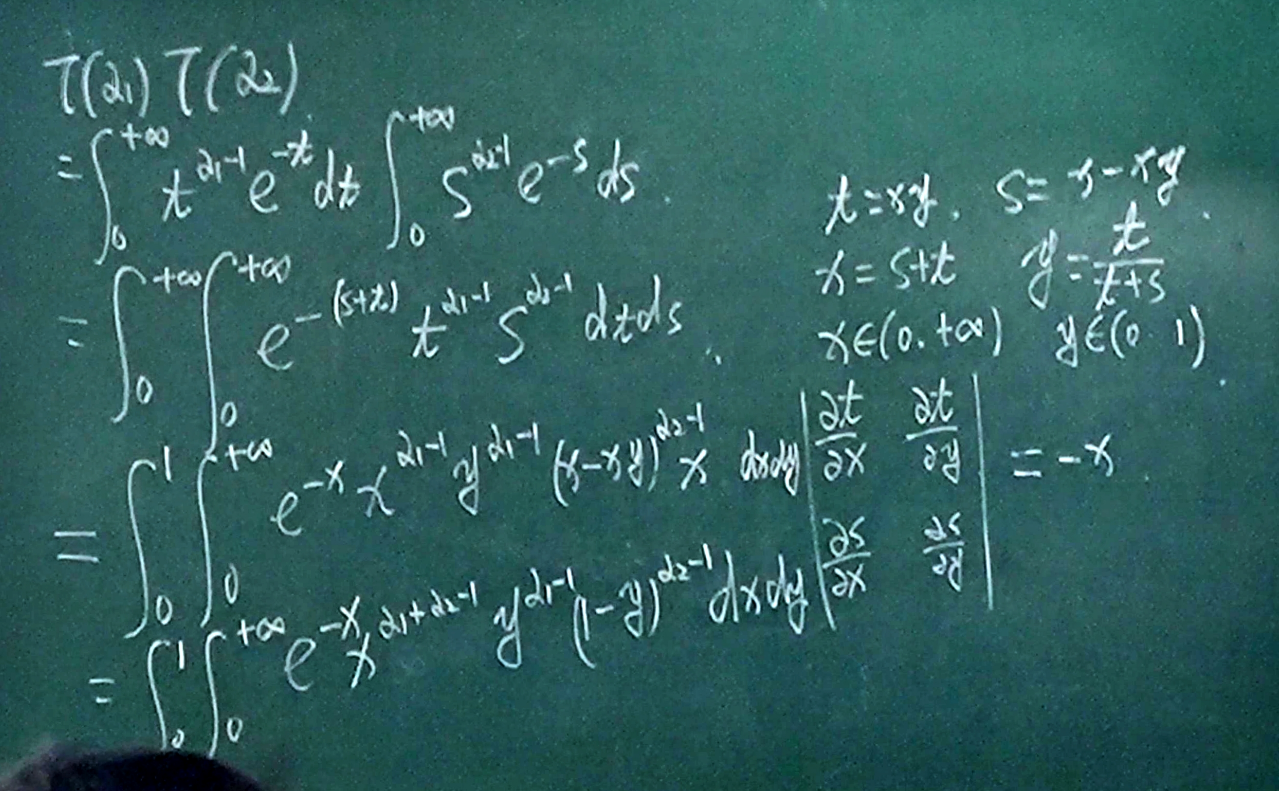 Γ(α₁) Γ(α₂)
= ∫₀^{+∞} t^{α₁-1} e^{-t} dt ∫₀^{+∞} s^{α₂-1} e^{-s} ds.
= ∫₀^{+∞} ∫₀^{+∞} e^{-(s+t)} t^{α₁-1} s^{α₂-1} dt ds
= ∫₀^{1} ∫₀^{+∞} e^{-x} x^{α₁-1} y^{α₁-1} (x-xy)^{α₂-1} x dxdy
= ∫₀^{1} ∫₀^{+∞} e^{-x} x^{α₁+α₂-1} y^{α₁-1} (1-y)^{α₂-1} dxdy
t=xy. s=x-xy.
x=s+t y=t/(t+s)
x∈(0.+∞) y∈(0 1).
|∂t/∂x ∂t/∂y| = -x
|∂s/∂x ∂s/∂y|